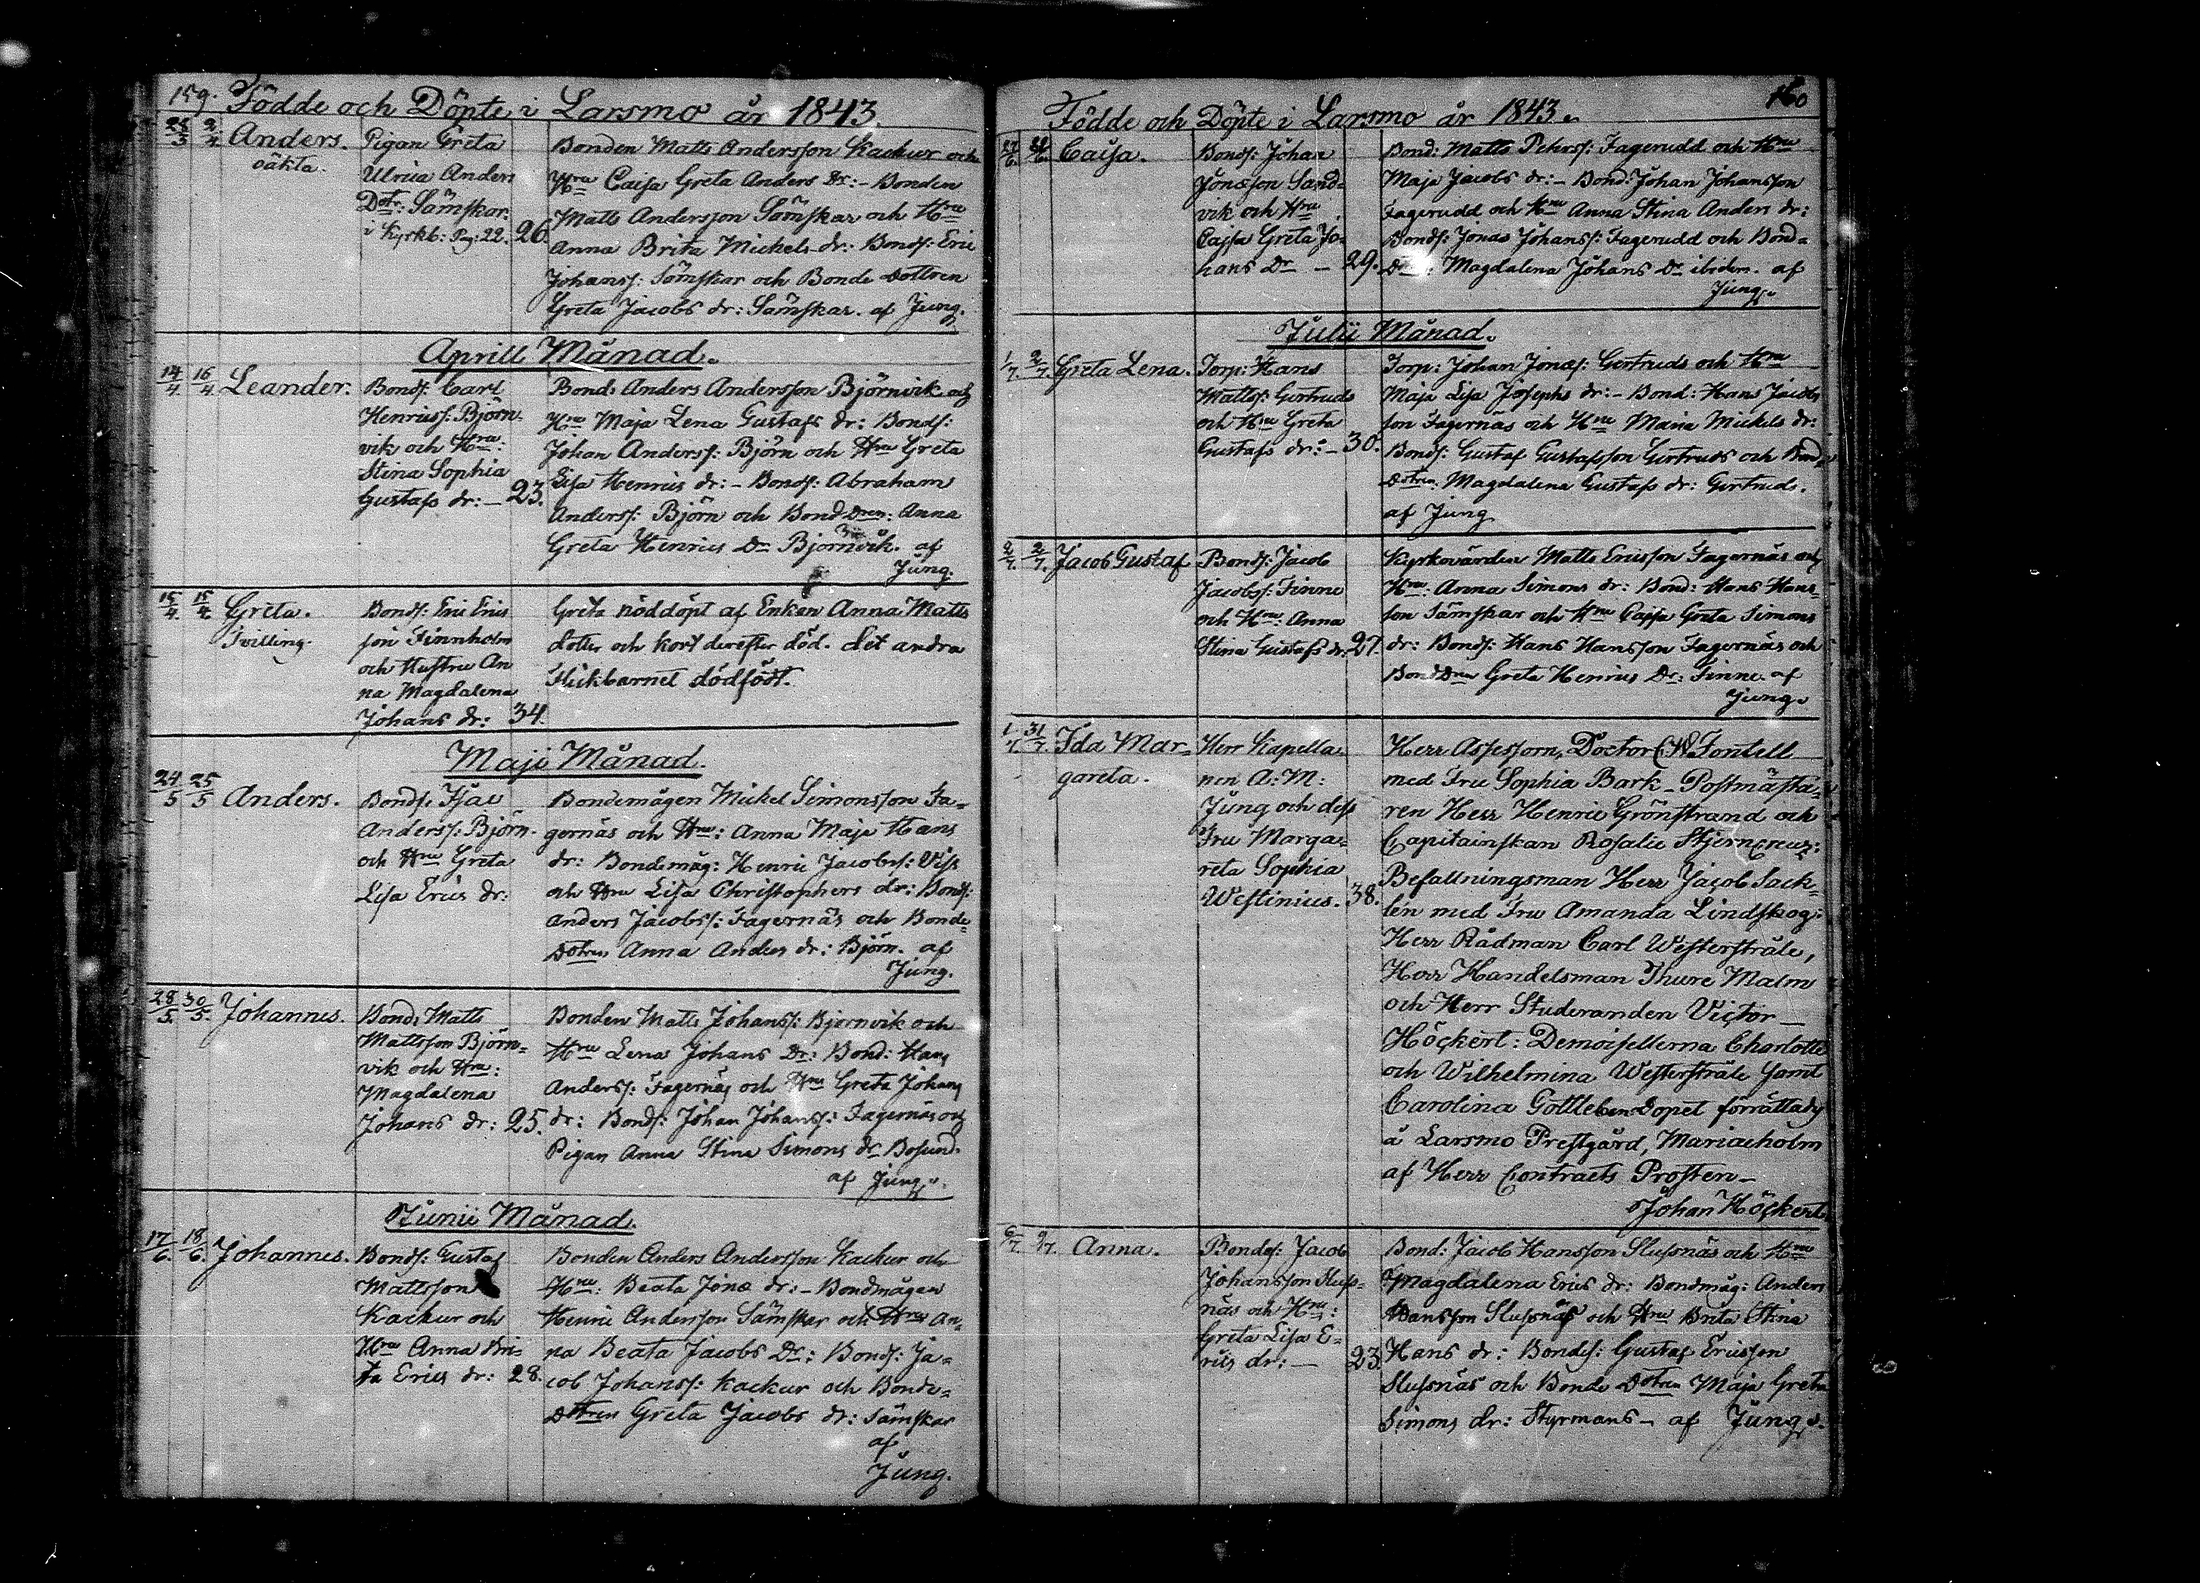 159. Födde och Döpte i Larsmo år 1843.
26/3 2/4 Anders. oäkta.
Pigan Greta
Ulrica Anders
Dotr: Sämskar.
i Kyrkb: Pag: 22. 26.
Bonden Matts Andersson Kackur och
Hru Caisa Greta Anders Dr: - Bonden
Matts Andersson Sämskar och Hru
Anna Brita Mickels dr: Bonds: Eric
Johanss: Sämskar och Bonde Dottren
Greta Jacobs dr: Sämskar. af Jung.
Aprill Månad.
14/4 16/4 Leander.
Bonds: Carl
Henricss: Björn-
vik och Hru:
Stina Sophia
Gustafs dr: - 23.
Bond: Anders Andersson Björnvik och
Hru Maja Lena Gustafs dr: Bonds:
Johan Anderss: Björn och Hru Greta
Lisa Henrics dr: - Bonds: Abraham
Anderss: Björn och Bond Dren: Anna
Greta Henrics Dr Björnvik. af
Jung.
15/4 15/4 Greta.
Tvilling.
Bonds: Eric Erics
son Finnholm
och Hustru An
na Magdalena
Johans dr: 34.
Greta nöddöpt af Enkan Anna Matts
dotter och kort derefter död. det andra
Flickbarnet dödfödt.
Maji Månad.
24/5 25/5 Anders.
Bonds: Isac
Anderss: Björn-
och Hru Greta
Lisa Erics dr:
Bondemågen Mickel Simonsson Fa-
gernäs och Hru: Anna Maja Hans
dr: Bondemåg: Henric Jacobss: Viss
och Hru Lisa Christophers dr: Bonds:
Anders Jacobss: Fagernäs och Bonde-
Dotren Anna Anders dr: Björn. af
Jung.
28/5 30/5 Johannes.
Bond: Matts
Mattsson Björn-
vik och Hru:
Magdalena
Johans dr: 25.
Bonden Matts Johanss: Björnvik och
Hru Lena Johans Dr: Bond: Hans
Anderss: Fagernäs och Hru Greta Johans
dr: Bonds: Johan Johanss: Fagernäs och
Pigan Anna Stina Simons dr Bosund.
af Jung.
Junii Månad.
17/6 18/6 Johannes.
Bonds: Gustaf
Mattsson
Kackur och
Hru Anna Bri-
ta Erics dr: 28.
Bonden Anders Andersson Kackur och
Hru: Beata Jonæ dr: - Bondmågen
Henric Andersson Sämskar och Hru An-
na Beata Jacobs Dr: Bonds: Ja-
cob Johanss: Kackur och Bonde-
Dottren Greta Jacobs dr: Sämskar
af
Jung.
160
Födde och Döpte i Larsmo år 1843.
Caisa.
Bonds: Johan
Jonæson Sand-
vik och Hru
Cajsa Greta Jo-
hans Dr - 29.
Bond: Matts Pehrss: Fagerudd och Hru
Maja Jacobs dr: - Bond: Johan Johansson
Fagerudd och Hru Anna Stina Anders dr:
Bonds: Jonas Johanss: Fagerudd och Bond-
Magdalena Johans Dr ibidem. af
Jung.
Julii Månad.
1/7. 2/7. Greta Lena.
Torp: Hans
Mattss: Gertruds
och Hru Greta
Gustafs dr: - 30.
Torp: Johan Jonæs: Gertruds och Hru
Maja Lisa Josephs dr: - Bond: Hans Jacobs
son Fagernäs och Hru Maria Mickels dr:
Bonds: Gustaf Gustafsson Gertruds och Bond-
Dotren Magdalena Gustafs dr: Gertruds.
af Jung
2/7. 2/7. Jacob Gustaf
Bonds: Jacob
Jacobss: Finne
och Hru: Anna
Stina Gustafs dr: 27.
Kyrkovärden Matts Ericsson Fagernäs och
Hru: Anna Simons dr: Bond: Hans Hans-
son Sämskar och Hru Cajsa Greta Simons
dr: Bonds: Hans Hansson Fagernäs och
Bond Dren Greta Henrics Dr: Finne. af
Jung.
1/7. 31/7. Ida Mar-
gareta.
Herr Kapella-
nen A: M:
Jung och dess
Fru Marga-
reta Sophia
Westinius. 38.
Herr Assessorn, Doctor C W Fontell
med Fru Sophia Bark - Postmästa-
ren Herr Henric Grönstrand och
Capitainskan Rosalie Stjerncreuz:
Befallningsman Herr Jacob Sack-
lén med Fru Amanda Lindskog:
Herr Rådman Carl Westerstråle,
Herr Handelsman Thure Malm
och Herr Studeranden Victor
Höckert: Demoisellerna Charlotte
och Wilhelmina Westerstråle samt
Carolina Gottleben Dopet förrättades
å Larsmo Prestgård, Mariaeholm
af Herr Contracts Prosten -
Johan Höckert.
6/7. 9/7. Anna.
Bondes: Jacob
Johansson Sluss-
näs och Hru:
Greta Lisa E-
rics dr: - 23.
Bond: Jacob Hansson Slussnäs och Hru
Magdalena Erics dr: Bondmåg: Anders
Hansson Slussnäs och Hru Brita Stina
Hans dr: Bondes: Gustaf Ericsson
Slussnäs och Bonde Dotren Maja Greta
Simons dr: Styrmans - af Jung.